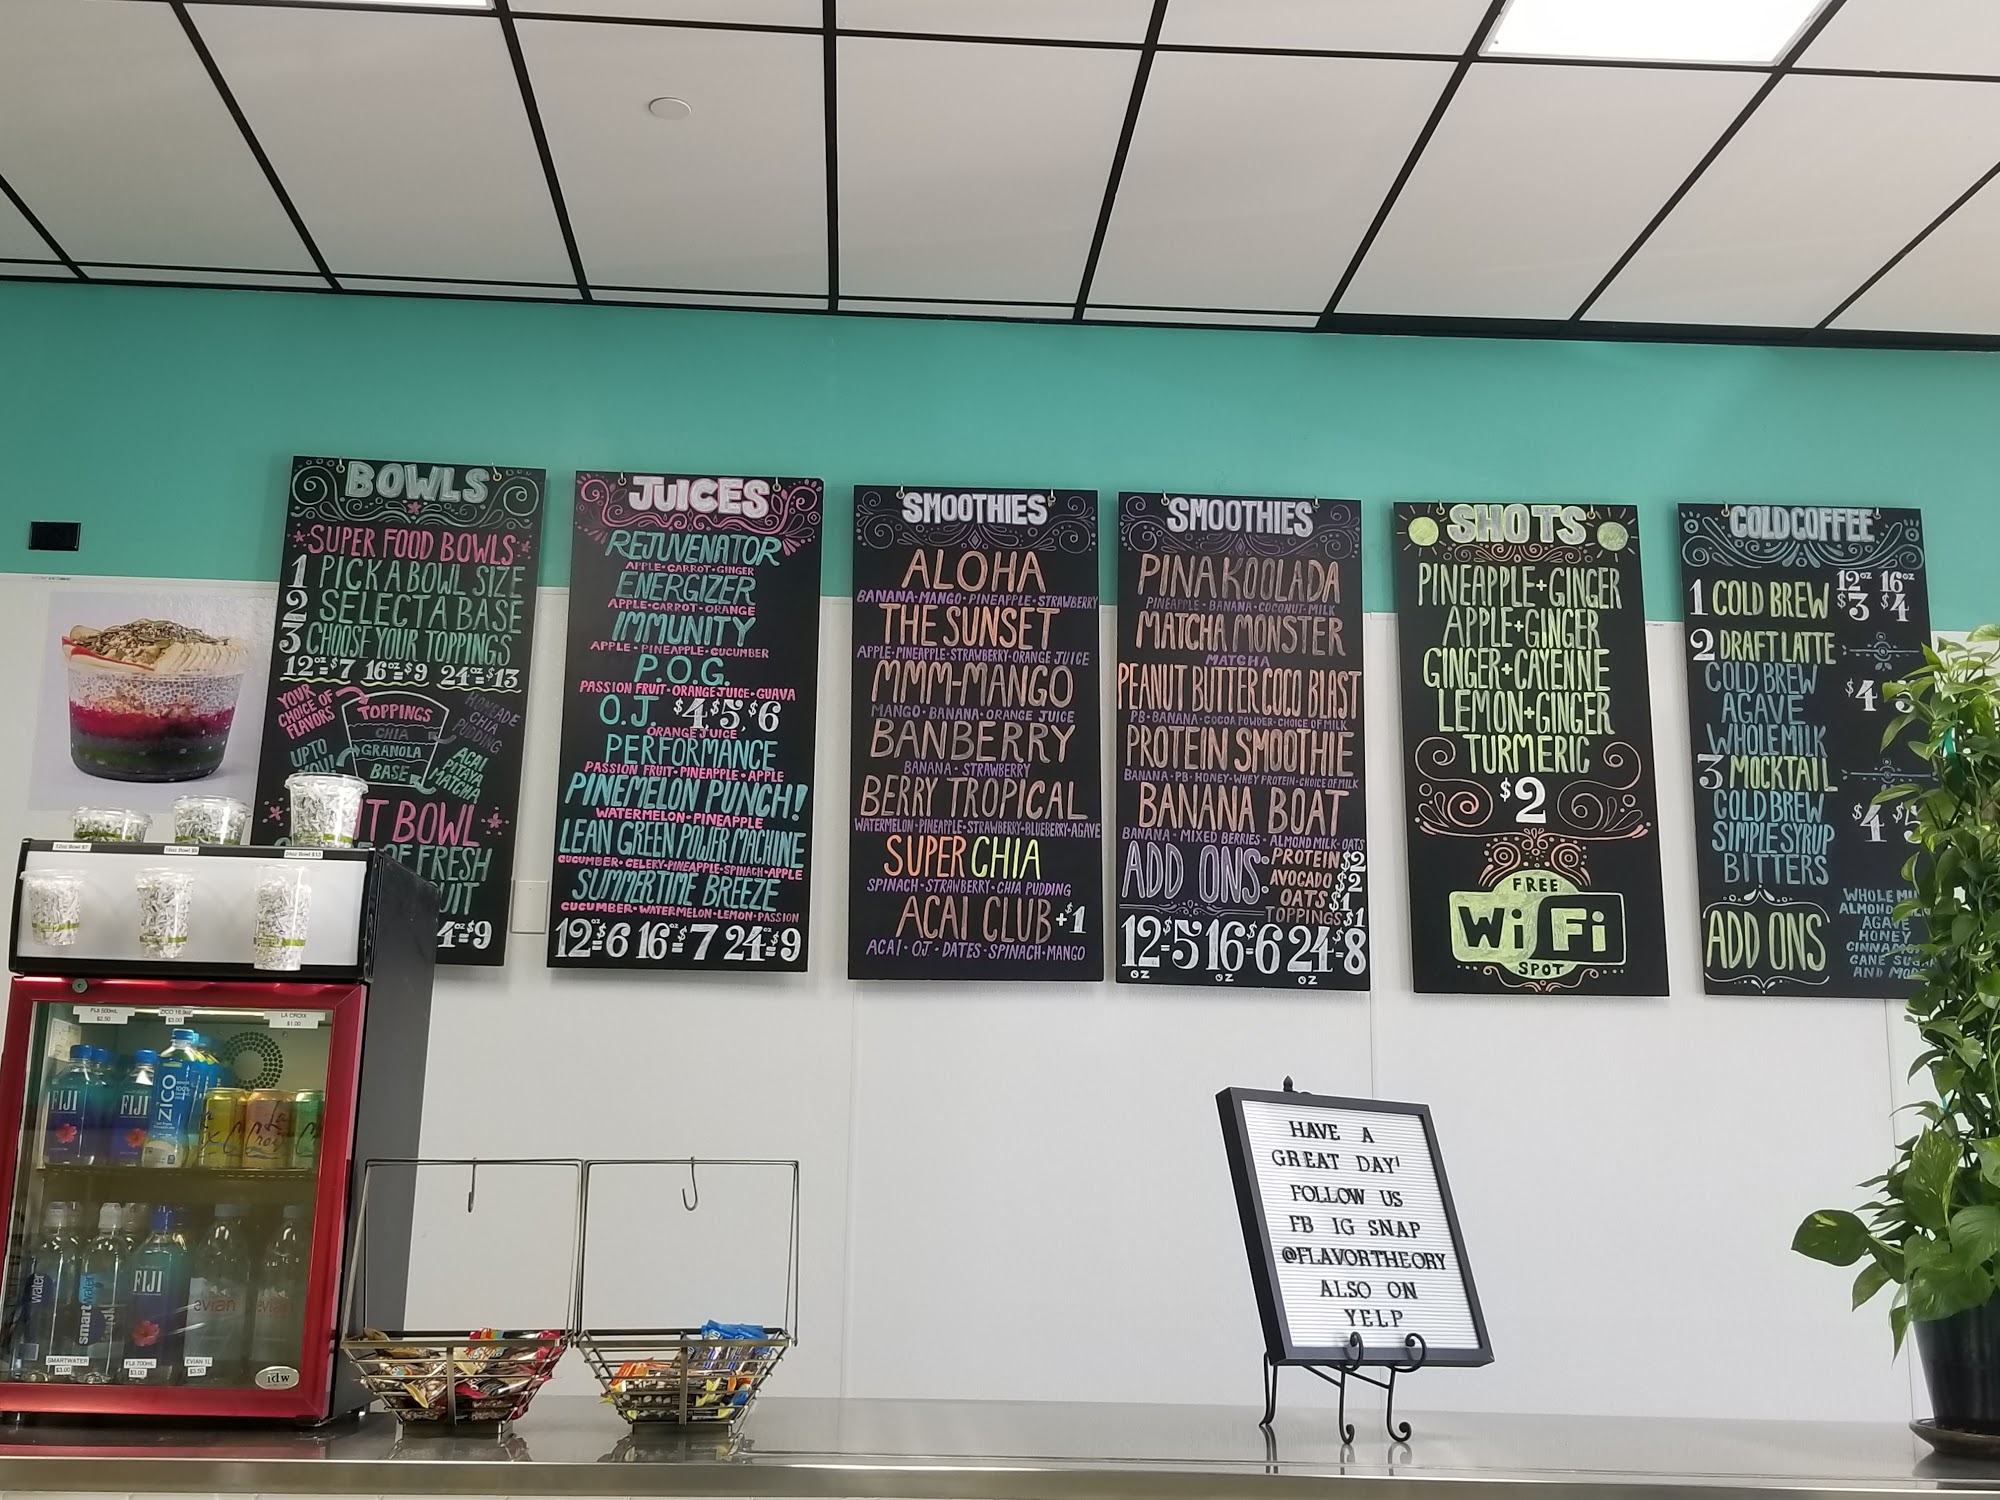 BOWLS
SUPER FOOD BOWLS
1 PICK A BOWL SIZE
2 SELECT A BASE
3 CHOOSE YOUR TOPPINGS
12oz=$7 16oz=$9 24oz=$13
YOUR CHOICE OF FLAVORS
TOPPINGS
CHIA
GRANOLA
BASE
UP TO
CHIA
PUDDING
ACAI
PITAYA
MATCHA
BOWL
OF FRESH
=$9
JUICES
REJUVENATOR
APPLE-CARROT-GINGER
ENERGIZER
APPLE-CARROT-ORANGE
IMMUNITY
APPLE-PINEAPPLE-CUCUMBER
P.O.G.
PASSION FRUIT-ORANGE JUICE-GUAVA
O.J. $4 $5 $6
ORANGE JUICE
PERFORMANCE
PASSION FRUIT-PINEAPPLE-APPLE
PINEMELON PUNCH!
WATERMELON-PINEAPPLE
LEAN GREEN POWER MACHINE
CUCUMBER-CELERY-PINEAPPLE-SPINACH-APPLE
SUMMERTIME BREEZE
CUCUMBER-WATERMELON-LEMON-PASSION
12oz=$6 16oz=$7 24oz=$9
SMOOTHIES
ALOHA
BANANA-MANGO-PINEAPPLE-STRAWBERRY
THE SUNSET
APPLE-PINEAPPLE-STRAWBERRY-ORANGE JUICE
MMM-MANGO
MANGO-BANANA-ORANGE JUICE
BANBERRY
BANANA-STRAWBERRY
BERRY TROPICAL
WATERMELON-PINEAPPLE-STRAWBERRY-BLUEBERRY-AGAVE
SUPER CHIA
SPINACH-STRAWBERRY-CHIA PUDDING
ACAI CLUB +$1
ACAI-O.J-DATES-SPINACH-MANGO
SMOOTHIES
PINA KOOLADA
PINEAPPLE-BANANA-COCONUT-MILK
MATCHA MONSTER
MATCHA
PEANUT BUTTER COCO BLAST
PB-BANANA-COCOA POWDER-CHOICE OF MILK
PROTEIN SMOOTHIE
BANANA-PB-HONEY-WHEY PROTEIN-CHOICE OF MILK
BANANA BOAT
BANANA-MIXED BERRIES-ALMOND MILK-OATS
ADD ONS:
PROTEIN $2
AVOCADO $2
OATS $1
TOPPINGS $1
12oz=$5 16oz=$6 24oz=$8
SHOTS
PINEAPPLE+GINGER
APPLE+GINGER
GINGER+CAYENNE
LEMON+GINGER
TURMERIC
$2
FREE
WiFi
SPOT
COLD COFFEE
12oz 16oz
1 COLD BREW $3 $4
2 DRAFT LATTE
COLD BREW
AGAVE $4
WHOLE MILK
3 MOCKTAIL
COLD BREW
SIMPLE SYRUP $4
BITTERS
ADD ONS
WHOLE
ALMOND
AGAVE
HONEY
CINNAMON
CANE
AND
12oz Bowl $7
16oz Bowl $9
24oz Bowl $13
FIJI 500mL
$2.50
ZICO 16.9oz
$3.00
LA CROIX
$1.00
FIJI
FIJI
ZICO
La Croix
water
smartwater
FIJI
evian
evian
SMARTWATER
$3.00
FIJI 700mL
$3.00
EVIAN 1L
$3.50
idw
HAVE A
GREAT DAY!
FOLLOW US
FB IG SNAP
@FLAVORTHEORY
ALSO ON
YELP